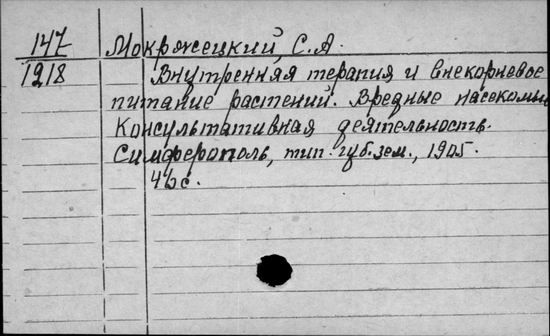 147
1218
Мокржецкий, С.А.
Внутренняя терапия и внекорневое
питание растений. Вредные насекомые
Консультативная деятельность.
Симферополь, тип. губ. зем., 1905.
46 с.